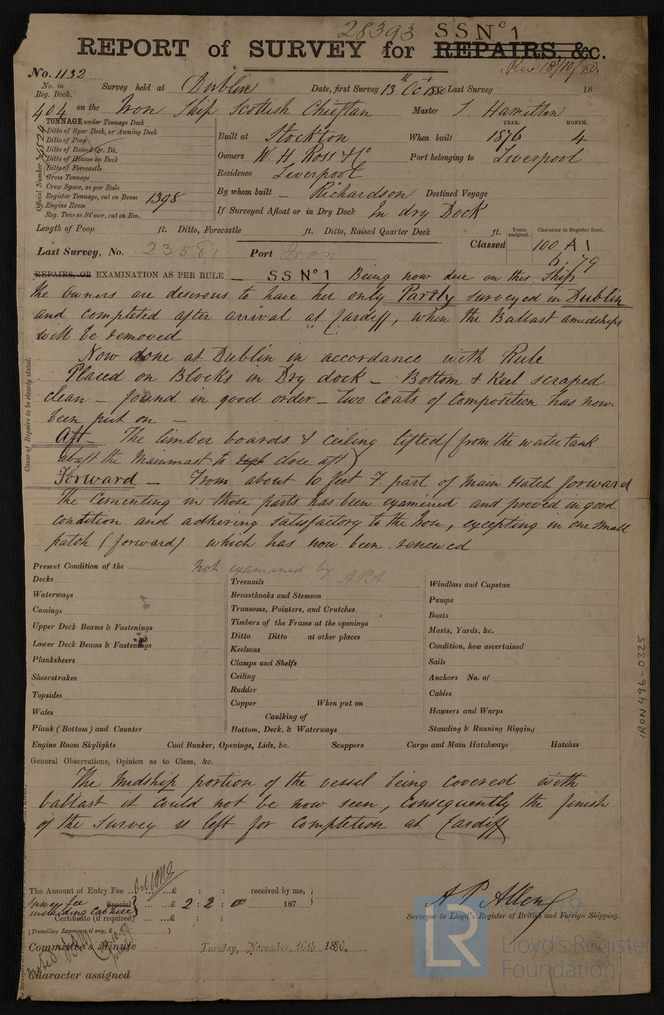 28393 SS No 1
REPORT of SURVEY for REPAIRS, &c.
No. 1132
Rec 18/10/80
No. in Reg. Book. Survey held at Dublin Date, first Survey 13th Oct 1880 Last Survey 18
404 on the Iron Ship Scottish Chieftan Master J. Hamilton
TONNAGE under Tonnage Deck
Ditto of Spar Deck, or Awning Deck
Ditto of Poop
Ditto of Raised Qr. Dk.
Ditto of Houses on Deck
Ditto of Forecastle
Gross Tonnage
Crew Space, as per Rule
Register Tonnage, cut on Beam 1398
Engine Room
Reg. Tons as St'mer, cut on Bm.
Official Number
YEAR. MONTH.
Built at Stockton When built 1876 4
Owners W. H. Ross & Co Port belonging to Liverpool
Residence Liverpool
By whom built Richardson Destined Voyage
If Surveyed Afloat or in Dry Dock In dry Dock
Length of Poop ft. Ditto, Forecastle ft. Ditto, Raised Quarter Deck ft.
Years assigned. Character in Register Book.
Last Survey, No. 23581 Port Iron Classed 100 A 1
6.79
REPAIRS, OR EXAMINATION AS PER RULE SS No 1 Being now due on this Ship
the Owners are desirous to have her only Partly surveyed in Dublin
and completed after arrival at Cardiff, when the Ballast amidships
will be removed
Now done at Dublin in accordance with Rule
Placed on Blocks in Dry dock – Bottom & Keel scraped
clean – found in good order – two coats of composition has now
been put on –
Aft – The limber boards & ceiling lifted (from the water tank
abaft the Mainmast to close aft)
Forward – From about 10 feet F part of Main Hatch forward
The cementing in those parts has been examined and proved in good
condition and adhering satisfactory to the Iron, excepting in one small
patch (forward) which has now been renewed
Cause of Repairs to be clearly stated.
Present Condition of the Not examined by APA
Decks
Waterways
Comings
Upper Deck Beams & Fastenings
Lower Deck Beams & Fastenings
Planksheers
Sheerstrakes
Topsides
Wales
Plank (Bottom) and Counter
Treenails
Breasthooks and Stemson
Transoms, Pointers, and Crutches
Timbers of the Frame at the openings
Ditto Ditto at other places
Keelsons
Clamps and Shelfs
Ceiling
Rudder
Copper When put on
Caulking of
Bottom, Deck, & Waterways
Windlass and Capstan
Pumps
Boats
Masts, Yards, &c.
Condition, how ascertained
Sails
Anchors No. of
Cables
Hawsers and Warps
Standing & Running Rigging
Engine Room Skylights Coal Bunker, Openings, Lids, &c. Scuppers Cargo and Main Hatchways Hatches
General Observations, Opinion as to Class, &c.
The Midship portion of the vessel being covered with
ballast it could not be now seen, consequently the finish
of the Survey is left for completion at Cardiff
IRON 496-0325
The Amount of Entry Fee £ : : received by me,
Survey fee including Cab hire Special £ 2 : 2 : 0 187
Certificate (if required) : :
(Travelling Expenses, if any, £ )
A P Allen
Surveyor to Lloyd's Register of British and Foreign Shipping.
Committee's Minute Tuesday, November 16th 1880.
Character assigned
LR
Lloyd's Register
Foundation